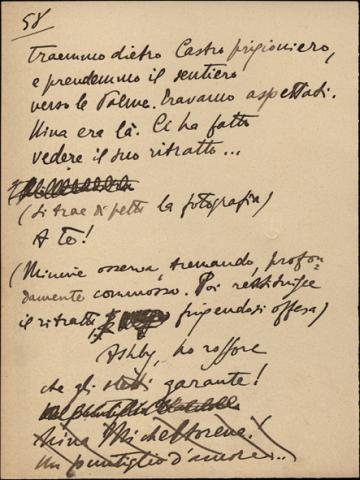 58
Traemmo dietro Castro prigioniero,
e prendemmo il sentiero
verso le Palme. Eravamo aspettati.
Nina era là. Ci ha fatto
vedere il suo ritratto...
(si trae di petto la fotografia)
A te!
(Minnie osserva, tremando, profon=
damente commossa. Poi restituisce
il ritratto, fingendosi offesa)
Ashby, ho rossore
che gli stetti garante!
Nina Micheltorena!
Un puntiglio d'amore...